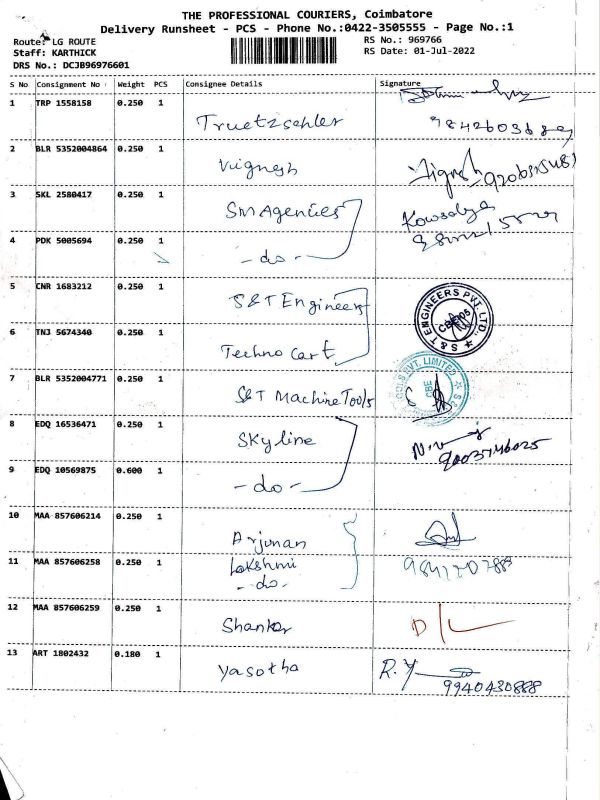 THE PROFESSIONAL COURIERS, Coimbatore
Delivery Runsheet - PCS - Phone No.:0422-3505555 - Page No.:1
Route: LG ROUTE
RS No.: 969766
Staff: KARTHICK
RS Date: 01-Jul-2022
DRS No.: DCJB96976601
S No Consignment No Weight PCS Consignee Details Signature
1 TRP 1558158 0.250 1
Truetzschler
2 BLR 5352004864 0.250 1
Vignesh
3 SKL 2580417 0.250 1
SM Agencies Kowsalya
4 PDK 5005694 0.250 1
- do -
5 CNR 1683212 0.250 1
S&T Engineers
S & T ENGINEERS PVT. LTD.,
6 TNJ 5674340 0.250 1
Techno Cart
7 BLR 5352004771 0.250 1
S&T Machine Tools
PVT. LIMITED
CBE
8 EDQ 16536471 0.250 1
Skyline
9003746025
9 EDQ 10569875 0.600 1
- do -
10 MAA 857606214 0.250 1
Arjunan
11 MAA 857606258 0.250 1
Lakshmi
- do -
12 MAA 857606259 0.250 1
Shanker D/L
13 ART 1802432 0.180 1
Yasotha R.Y
9940430888